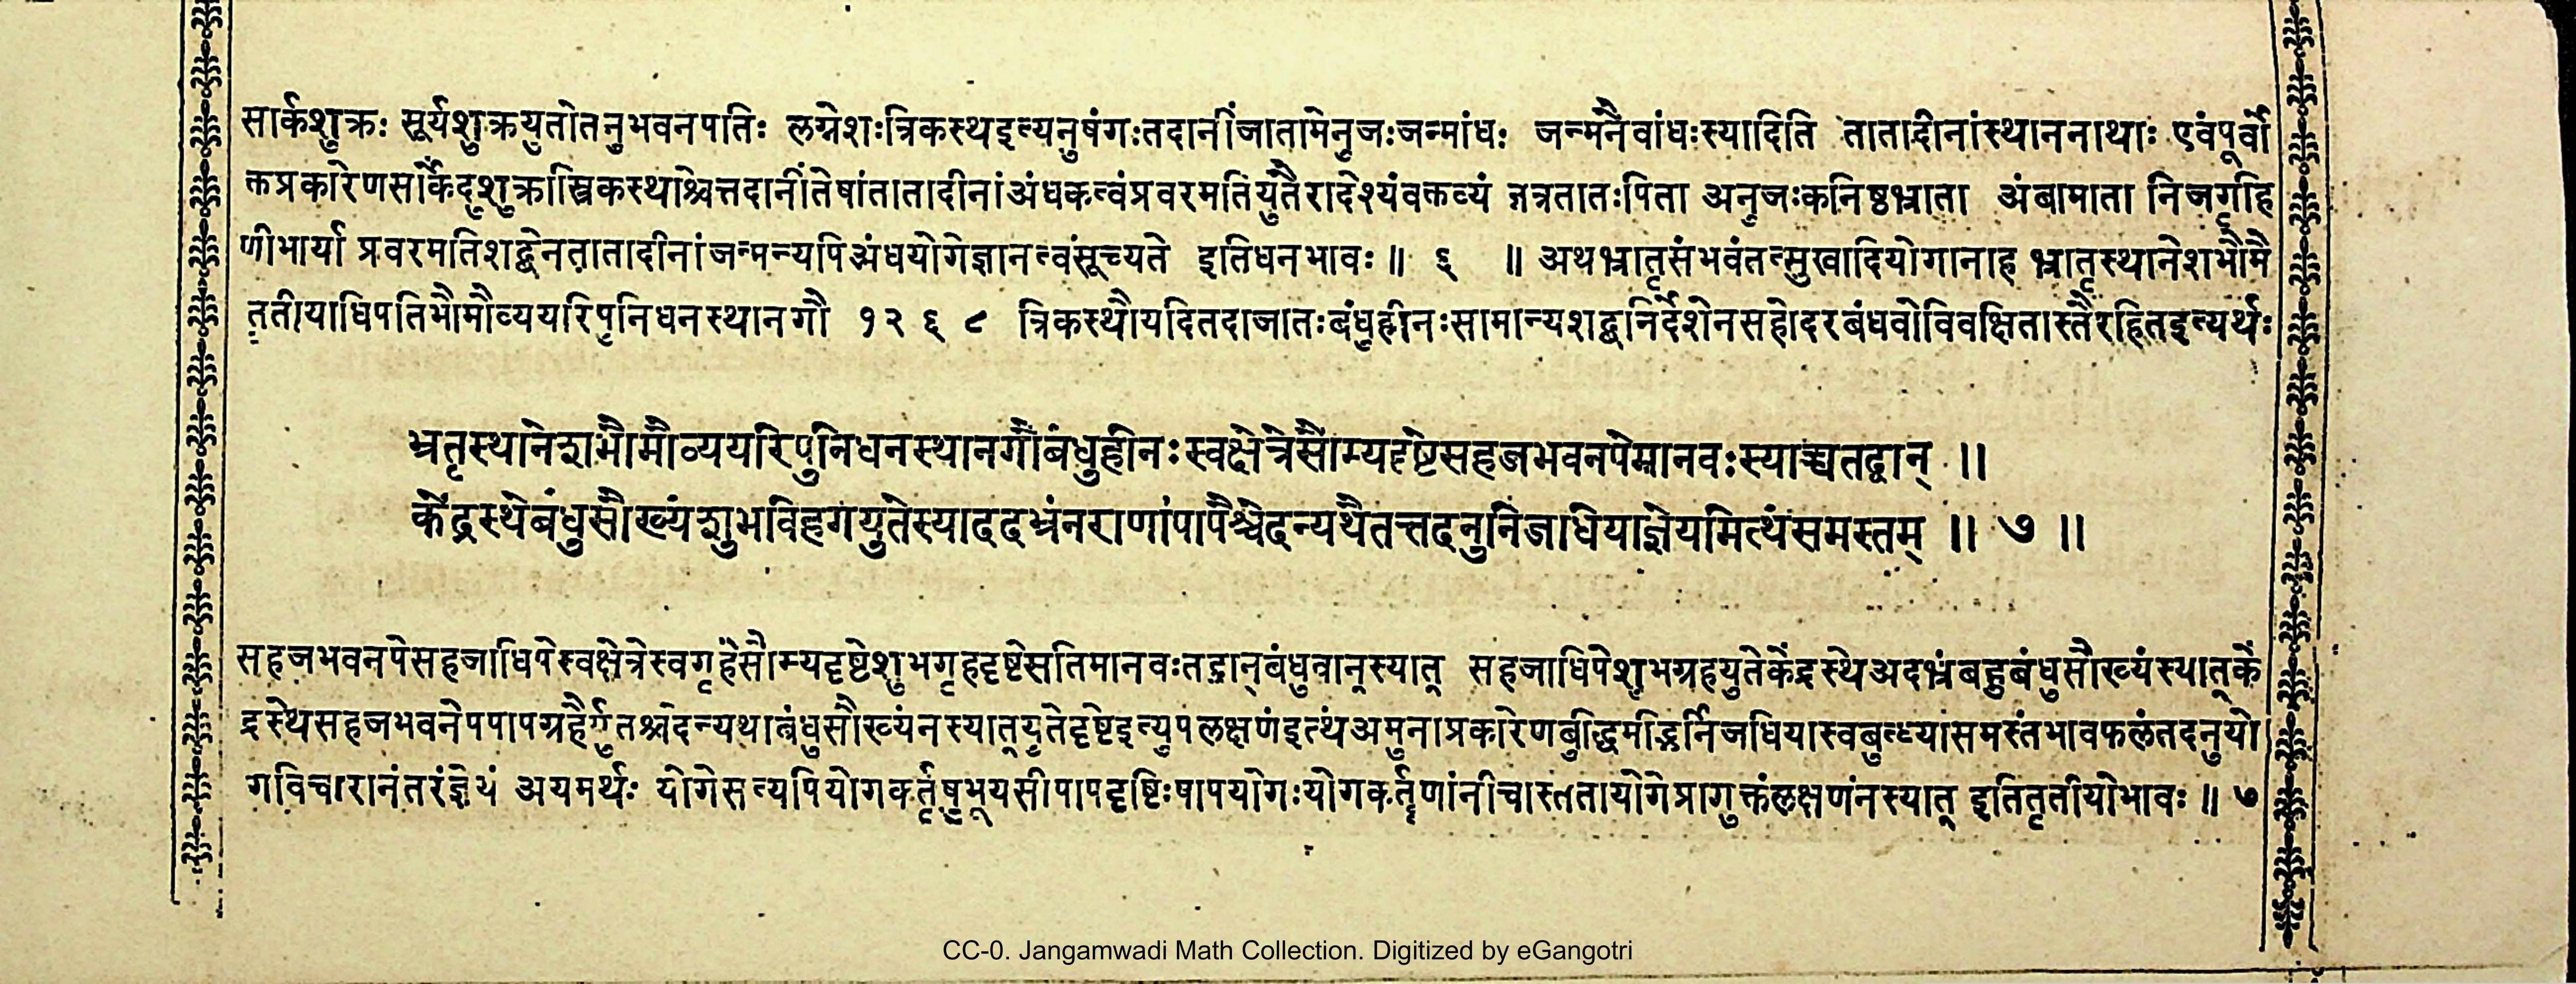 सार्कशुक्रः सूर्यशुक्रयुतोतनुभवनपतिः लग्नेशःत्रिकस्थइत्यनुषंगःतदानींजातामेनुजःजन्मांधः जन्मनैवांधःस्यादिति तातादीनांस्थाननाथाः एवंपूर्वो
क्तप्रकारेणसार्केंदुशुक्रास्त्रिकस्थाश्चेत्तदानींतेषांतातादीनांअंधकत्वंप्रवरमतियुतैरादेश्यंवक्तव्यं तत्रतातःपिता अनुजःकनिष्ठभ्राता अंबामाता निजगृहि
णीभार्या प्रवरमतिशद्वेनतातादीनांजन्मन्यपिअंधयोगेज्ञानत्वंसूच्यते इतिधनभावः ॥ ६ ॥ अथभ्रातृसंभवंतत्सुखादियोगानाह भ्रातृस्थानेशभौमै
तृतीयाधिपतिभौमौव्ययरिपुनिधनस्थानगौ १२ ६ ८ त्रिकस्थौयदितदाजातःबंधुहीनःसामान्यशद्वनिर्देशेनसहोदरबंधवोविवक्षितास्तैरहितइत्यर्थः
भ्रतृस्थानेशभौमौव्ययरिपुनिधनस्थानगौबंधुहीनःस्वक्षेत्रेसौम्यदृष्टेसहजभवनपेमानवःस्याच्चतद्वान् ॥
केंद्रस्थेबंधुसौख्यंशुभविहगयुतेस्याददभ्रंनराणांपापैश्चेदन्यथैतत्तदनुनिजधियाज्ञेयमित्थंसमस्तम् ॥ ७ ॥
सहजभवनपेसहजाधिपेस्वक्षेत्रेस्वगृहेसौम्यदृष्टेशुभगृहदृष्टेसतिमानवःतद्वान्बंधुवान्स्यात् सहजाधिपेशुभग्रहयुतेकेंद्रस्थेअदभ्रंबहुबंधुसौख्यंस्यात्कें
द्रस्थेसहजभवनेपपापग्रहैर्युतश्चेदन्यथाबंधुसौख्यंनस्यात्युतेदृष्टेइत्युपलक्षणंइत्थंअमुनाप्रकारेणबुद्धिमद्भिर्निजधियास्वबुध्यासमस्तंभावफलंतदनुयो
गविचारानंतरंज्ञेयं अयमर्थः योगेसत्यपियोगकर्तृषुभूयसीपापदृष्टिःपापयोगःयोगकर्तृणांनीचास्ततायोगेप्रागुक्तंलक्षणंनस्यात् इतितृतीयोभावः ॥ ७
CC-0. Jangamwadi Math Collection. Digitized by eGangotri